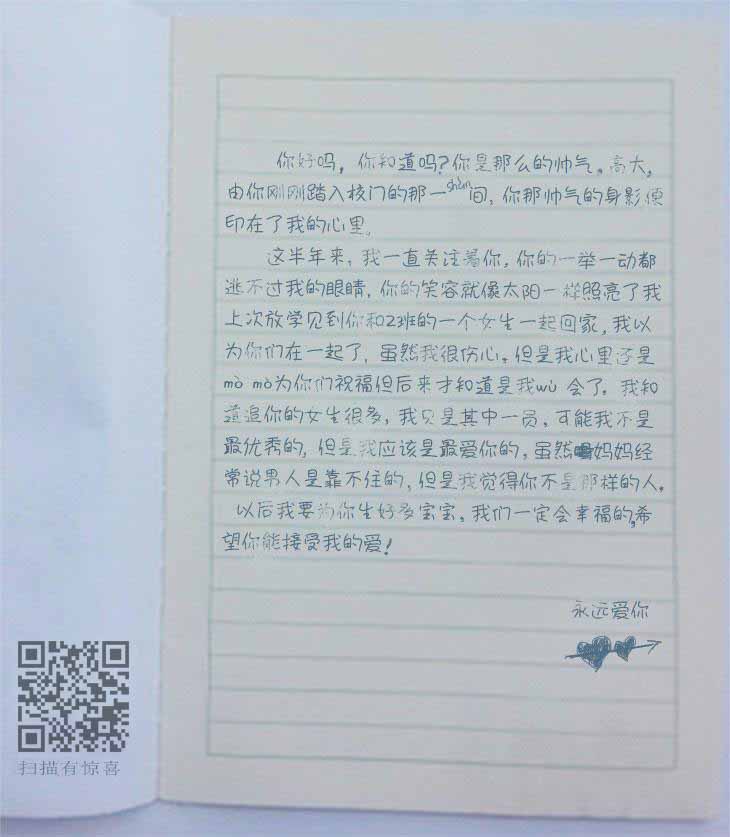 你好吗，你知道吗？你是那么的帅气。高大，
shùn
由你刚刚踏入校门的那一间，你那帅气的身影便
印在了我的心里。
这半年来，我一直关注着你，你的一举一动都
逃不过我的眼睛，你的笑容就像太阳一样照亮了我
上次放学见到你和2班的一个女生一起回家，我以
为你们在一起了，虽然我很伤心。但是我心里还是
mò mò为你们祝福但后来才知道是我wù会了。我知
道追你的女生很多，我只是其中一员，可能我不是
最优秀的，但是我应该是最爱你的，虽然妈妈经
常说男人是靠不住的，但是我觉得你不是那样的人。
以后我要为你生好多宝宝。我们一定会幸福的，希
望你能接受我的爱！
永远爱你
扫描有惊喜